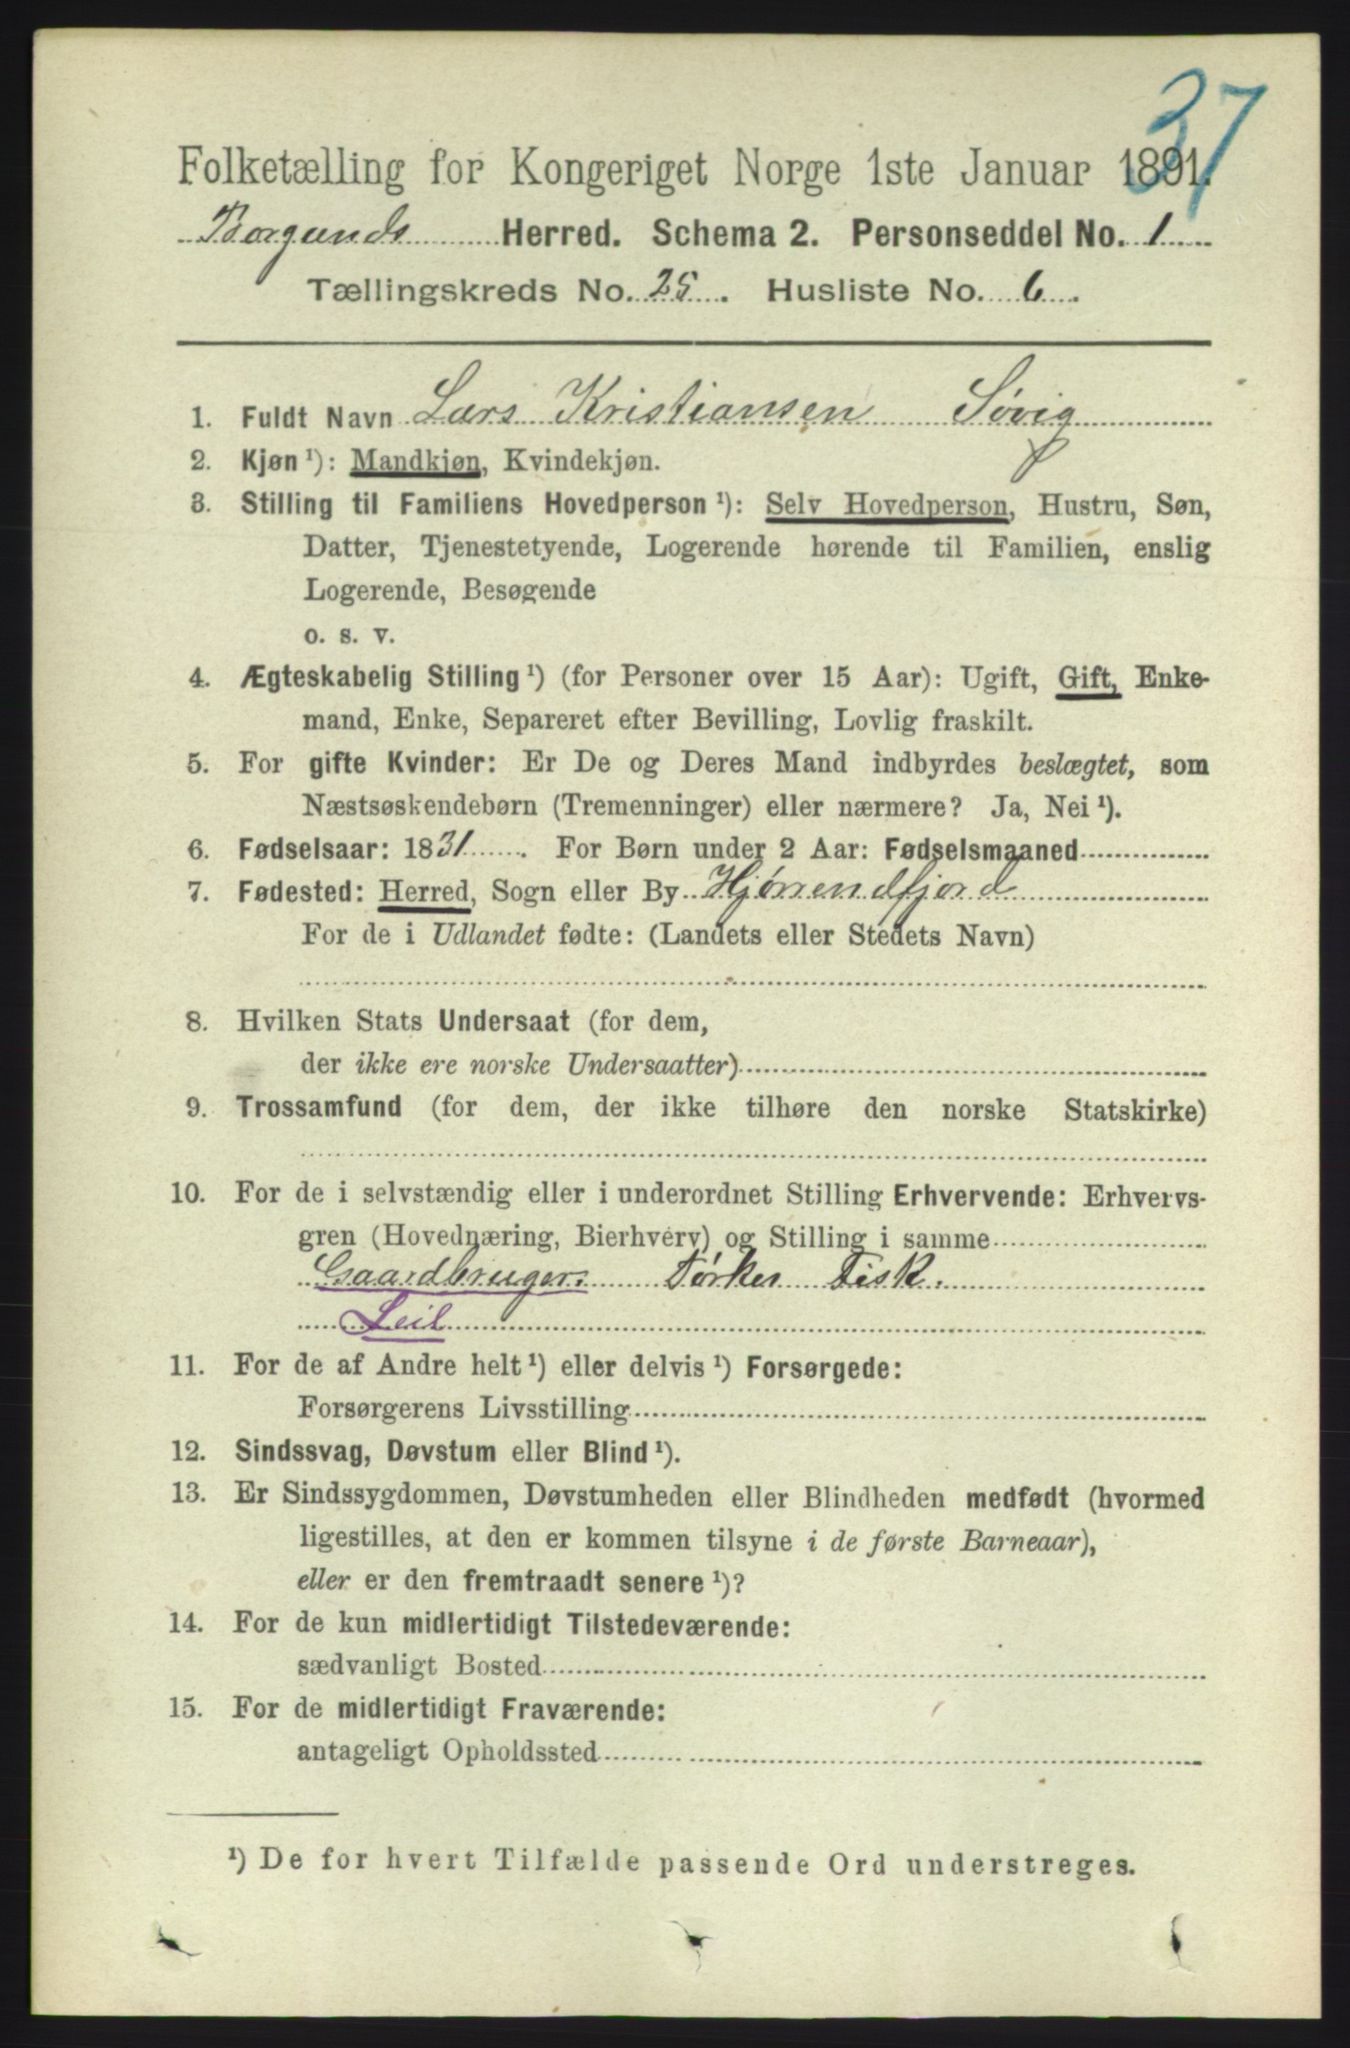 37
Folketælling for Kongeriget Norge 1ste Januar 1891.
Borgunds Herred. Schema 2. Personseddel No. 1
Tællingskreds No. 25. Husliste No. 6.
1. Fuldt Navn Lars Kristiansen Søvig
2. Kjøn ¹): Mandkjøn, Kvindekjøn.
3. Stilling til Familiens Hovedperson ¹): Selv Hovedperson, Hustru, Søn,
Datter, Tjenestetyende, Logerende hørende til Familien, enslig
Logerende, Besøgende
o. s. v.
4. Ægteskabelig Stilling ¹) (for Personer over 15 Aar): Ugift, Gift, Enke-
mand, Enke, Separeret efter Bevilling, Lovlig fraskilt.
5. For gifte Kvinder: Er De og Deres Mand indbyrdes beslægtet, som
Næstsøskendebørn (Tremenninger) eller nærmere? Ja, Nei ¹).
6. Fødselsaar: 1831. For Børn under 2 Aar: Fødselsmaaned
7. Fødested: Herred, Sogn eller By Hjørrendfjord
For de i Udlandet fødte: (Landets eller Stedets Navn)
8. Hvilken Stats Undersaat (for dem,
der ikke ere norske Undersaatter)
9. Trossamfund (for dem, der ikke tilhøre den norske Statskirke)
10. For de i selvstændig eller i underordnet Stilling Erhvervende: Erhvervs-
gren (Hovednæring, Bierhverv) og Stilling i samme
Gaardbruger. Tørker Fisk.
Leil
11. For de af Andre helt ¹) eller delvis ¹) Forsørgede:
Forsørgerens Livsstilling
12. Sindssvag, Døvstum eller Blind ¹).
13. Er Sindssygdommen, Døvstumheden eller Blindheden medfødt (hvormed
ligestilles, at den er kommen tilsyne i de første Barneaar),
eller er den fremtraadt senere ¹)?
14. For de kun midlertidigt Tilstedeværende:
sædvanligt Bosted
15. For de midlertidigt Fraværende:
antageligt Opholdssted
¹) De for hvert Tilfælde passende Ord understreges.